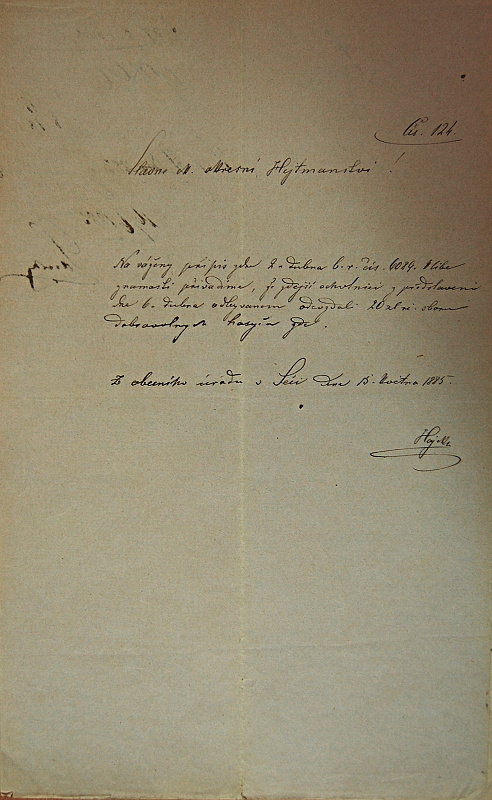 Čís. 124.
Slavné c. k. okresní Hejtmanství!
Na vážený přípis zde 2. dubna b. r. čís. 6089. k libé
známosti přivádíme, že zdejší ochotníci z představení
dne 6. dubna odbývaném odevzdali 20 zl.
dobrovolných hasičů zde.
Z obecního úřadu v Seči Dne 15. Května 1885.